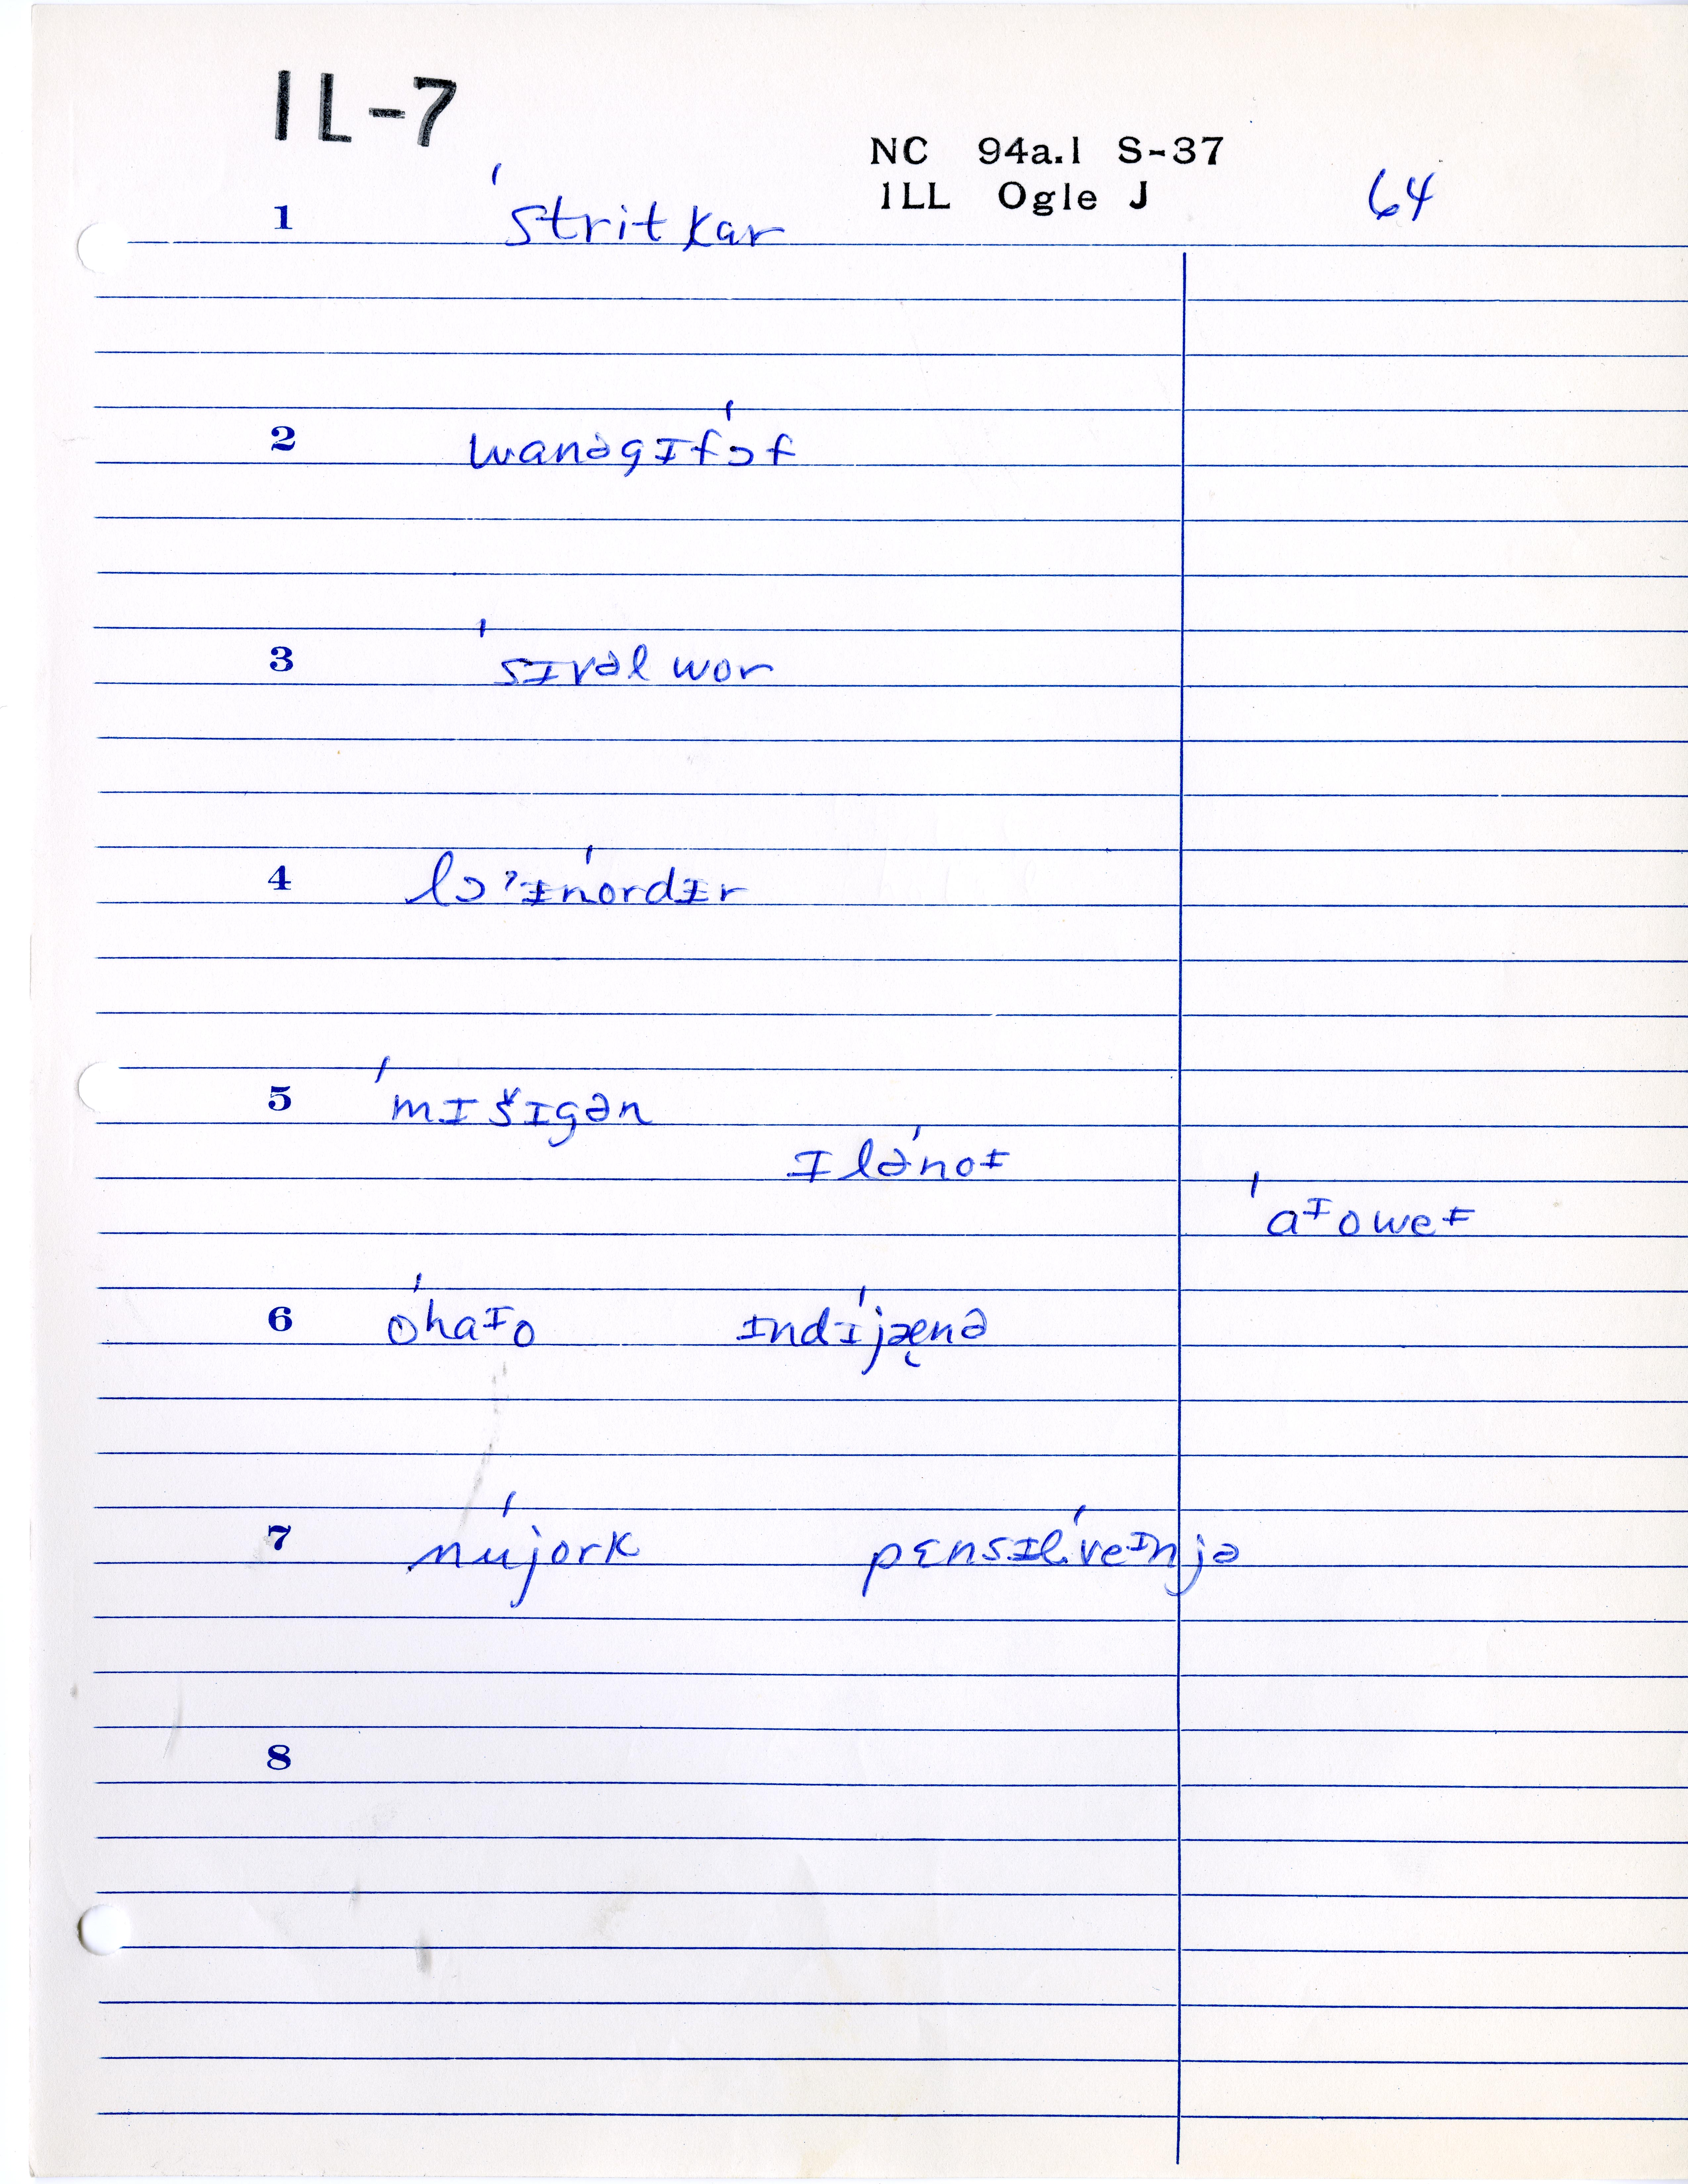 IL-7
NC 94a.1 S-37
ILL Ogle J
64
1 ˈstrit kar
2 wanəgɪfˈɔf
3 ˈsɪvəl wor
4 lɔˀɪnˈordɪr
5 ˈmɪšɪgən
ɪləˈnoɪ
ˈaɪoweɪ
6 oˈhaɪo ɪndɪˈjænə
7 nuˈjork pɛnsɪlˈveɪnjə
8